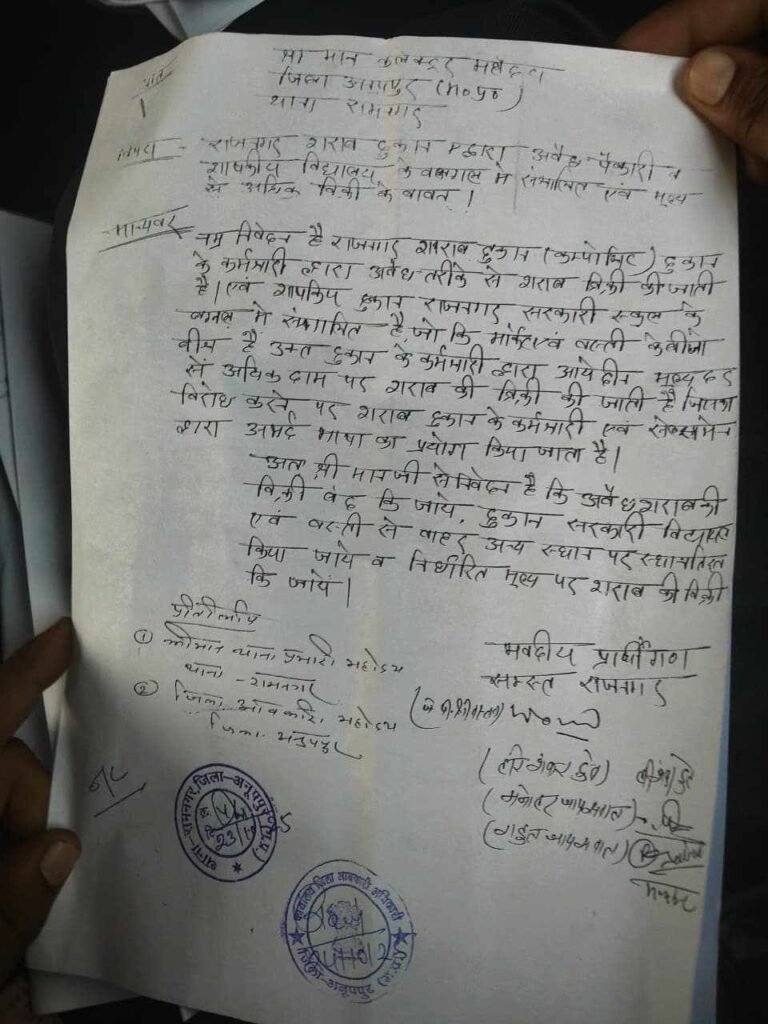 प्रति
श्री मान कलेक्टर महोदय
जिला अनुपपुर (म०प्र०)
थाना रामनगर
विषय - राजनगर शराब दुकान द्वारा अवैध पैकारी व
शासकीय विद्यालय के बगल मे संचालित एवं मूल्य
से अधिक बिक्री के बावत।
मान्यवर
नम्र निवेदन है राजनगर शराब दुकान (कम्पोजिट) दुकान
के कर्मचारी द्वारा अवैध तरीके से शराब बिक्री की जाती
है। एवं शासकिय दुकान राजनगर सरकारी स्कूल के
बगल मे संचालित है, जो कि मार्केट एवं बस्ती के बीचो
बीच है उक्त दुकान के कर्मचारी द्वारा आये दीन मूल्य दर
से अधिक दाम पर शराब की बिक्री की जाती है जिसका
विरोध करने पर शराब दुकान के कर्मचारी एवं सेल्समेन
द्वारा अभद्र भाषा का प्रयोग किया जाता है।
अतः श्री मान जी से निवेदन है कि अवैध शराब की
बिक्री बंद कि जाये, दुकान सरकारी विद्यालय
एवं बस्ती से बाहर अन्य स्थान पर स्थानांतरित
किया जाये व निर्धारित मूल्य पर शराब की बिक्री
कि जाये।
प्रतीलीपि
① श्रीमान थाना प्रभारी महोदय
थाना - रामनगर
② जिला आबकारी महोदय
जिला अनुपपुर
भवदीय प्रार्थीगण
समस्त राजनगर
(हरि शंकर
(मनोहर जायसवाल)
(राहुल जायसवाल)
थाना-रामनगर, जिला-अनूपपुर (म.प्र.)
कार्यालय जिला आबकारी अधिकारी
जिला-अनूपपुर (म.प्र.)